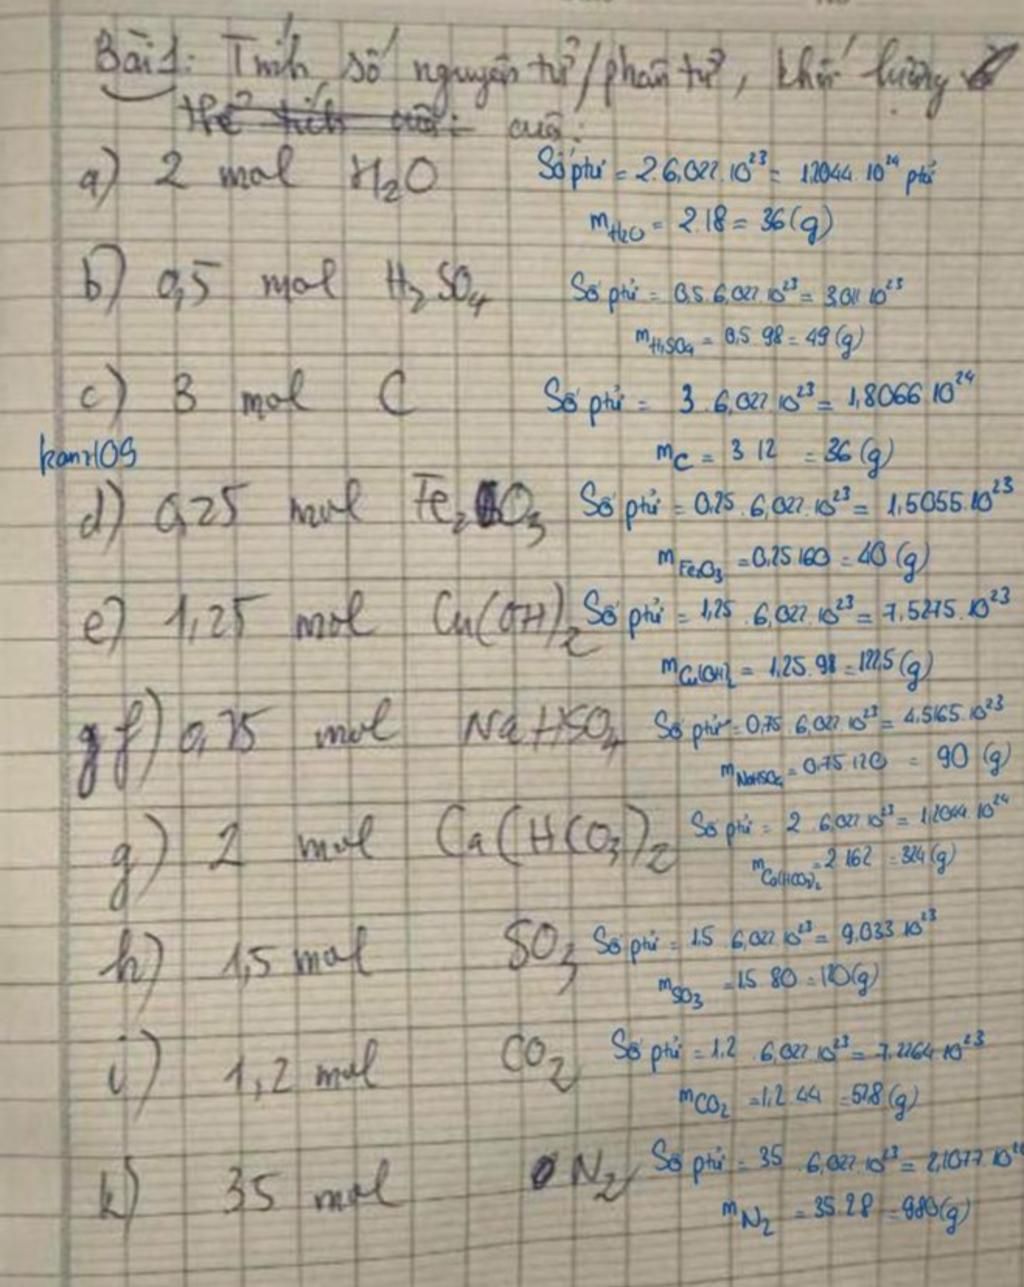 Bài 1: Tính số nguyên tử/phân tử, khối lượng
thể tích của: của:
a) 2 mol H₂O Số ptử = 2.6,022.10²³ = 1,2044.10²⁴ ptử
m H₂O = 2.18 = 36(g)
b) 0,5 mol H₂SO₄ Số ptử = 0,5.6,022.10²³ = 3,011.10²³
m H₂SO₄ = 0,5.98 = 49(g)
c) 3 mol C Số ptử = 3.6,022.10²³ = 1,8066.10²⁴
kanz109
m C = 3.12 = 36(g)
d) 0,25 mol Fe₂O₃ Số ptử = 0,25.6,022.10²³ = 1,5055.10²³
m Fe₂O₃ = 0,25.160 = 40(g)
e) 1,25 mol Cu(OH)₂ Số ptử = 1,25.6,022.10²³ = 7,5275.10²³
m Cu(OH)₂ = 1,25.98 = 122,5(g)
g f) 0,75 mol NaHSO₄ Số ptử = 0,75.6,022.10²³ = 4,5165.10²³
m NaHSO₄ = 0,75.120 = 90(g)
g) 2 mol Ca(HCO₃)₂ Số ptử = 2.6,022.10²³ = 1,2044.10²⁴
m Ca(HCO₃)₂ = 2.162 = 324(g)
h) 1,5 mol SO₃ Số ptử = 1,5.6,022.10²³ = 9,033.10²³
m SO₃ = 1,5.80 = 120(g)
i) 1,2 mol CO₂ Số ptử = 1,2.6,022.10²³ = 7,2264.10²³
m CO₂ = 1,2.44 = 52,8(g)
k) 35 mol N₂ Số ptử = 35.6,022.10²³ = 2,1077.10
m N₂ = 35.28 = 980(g)